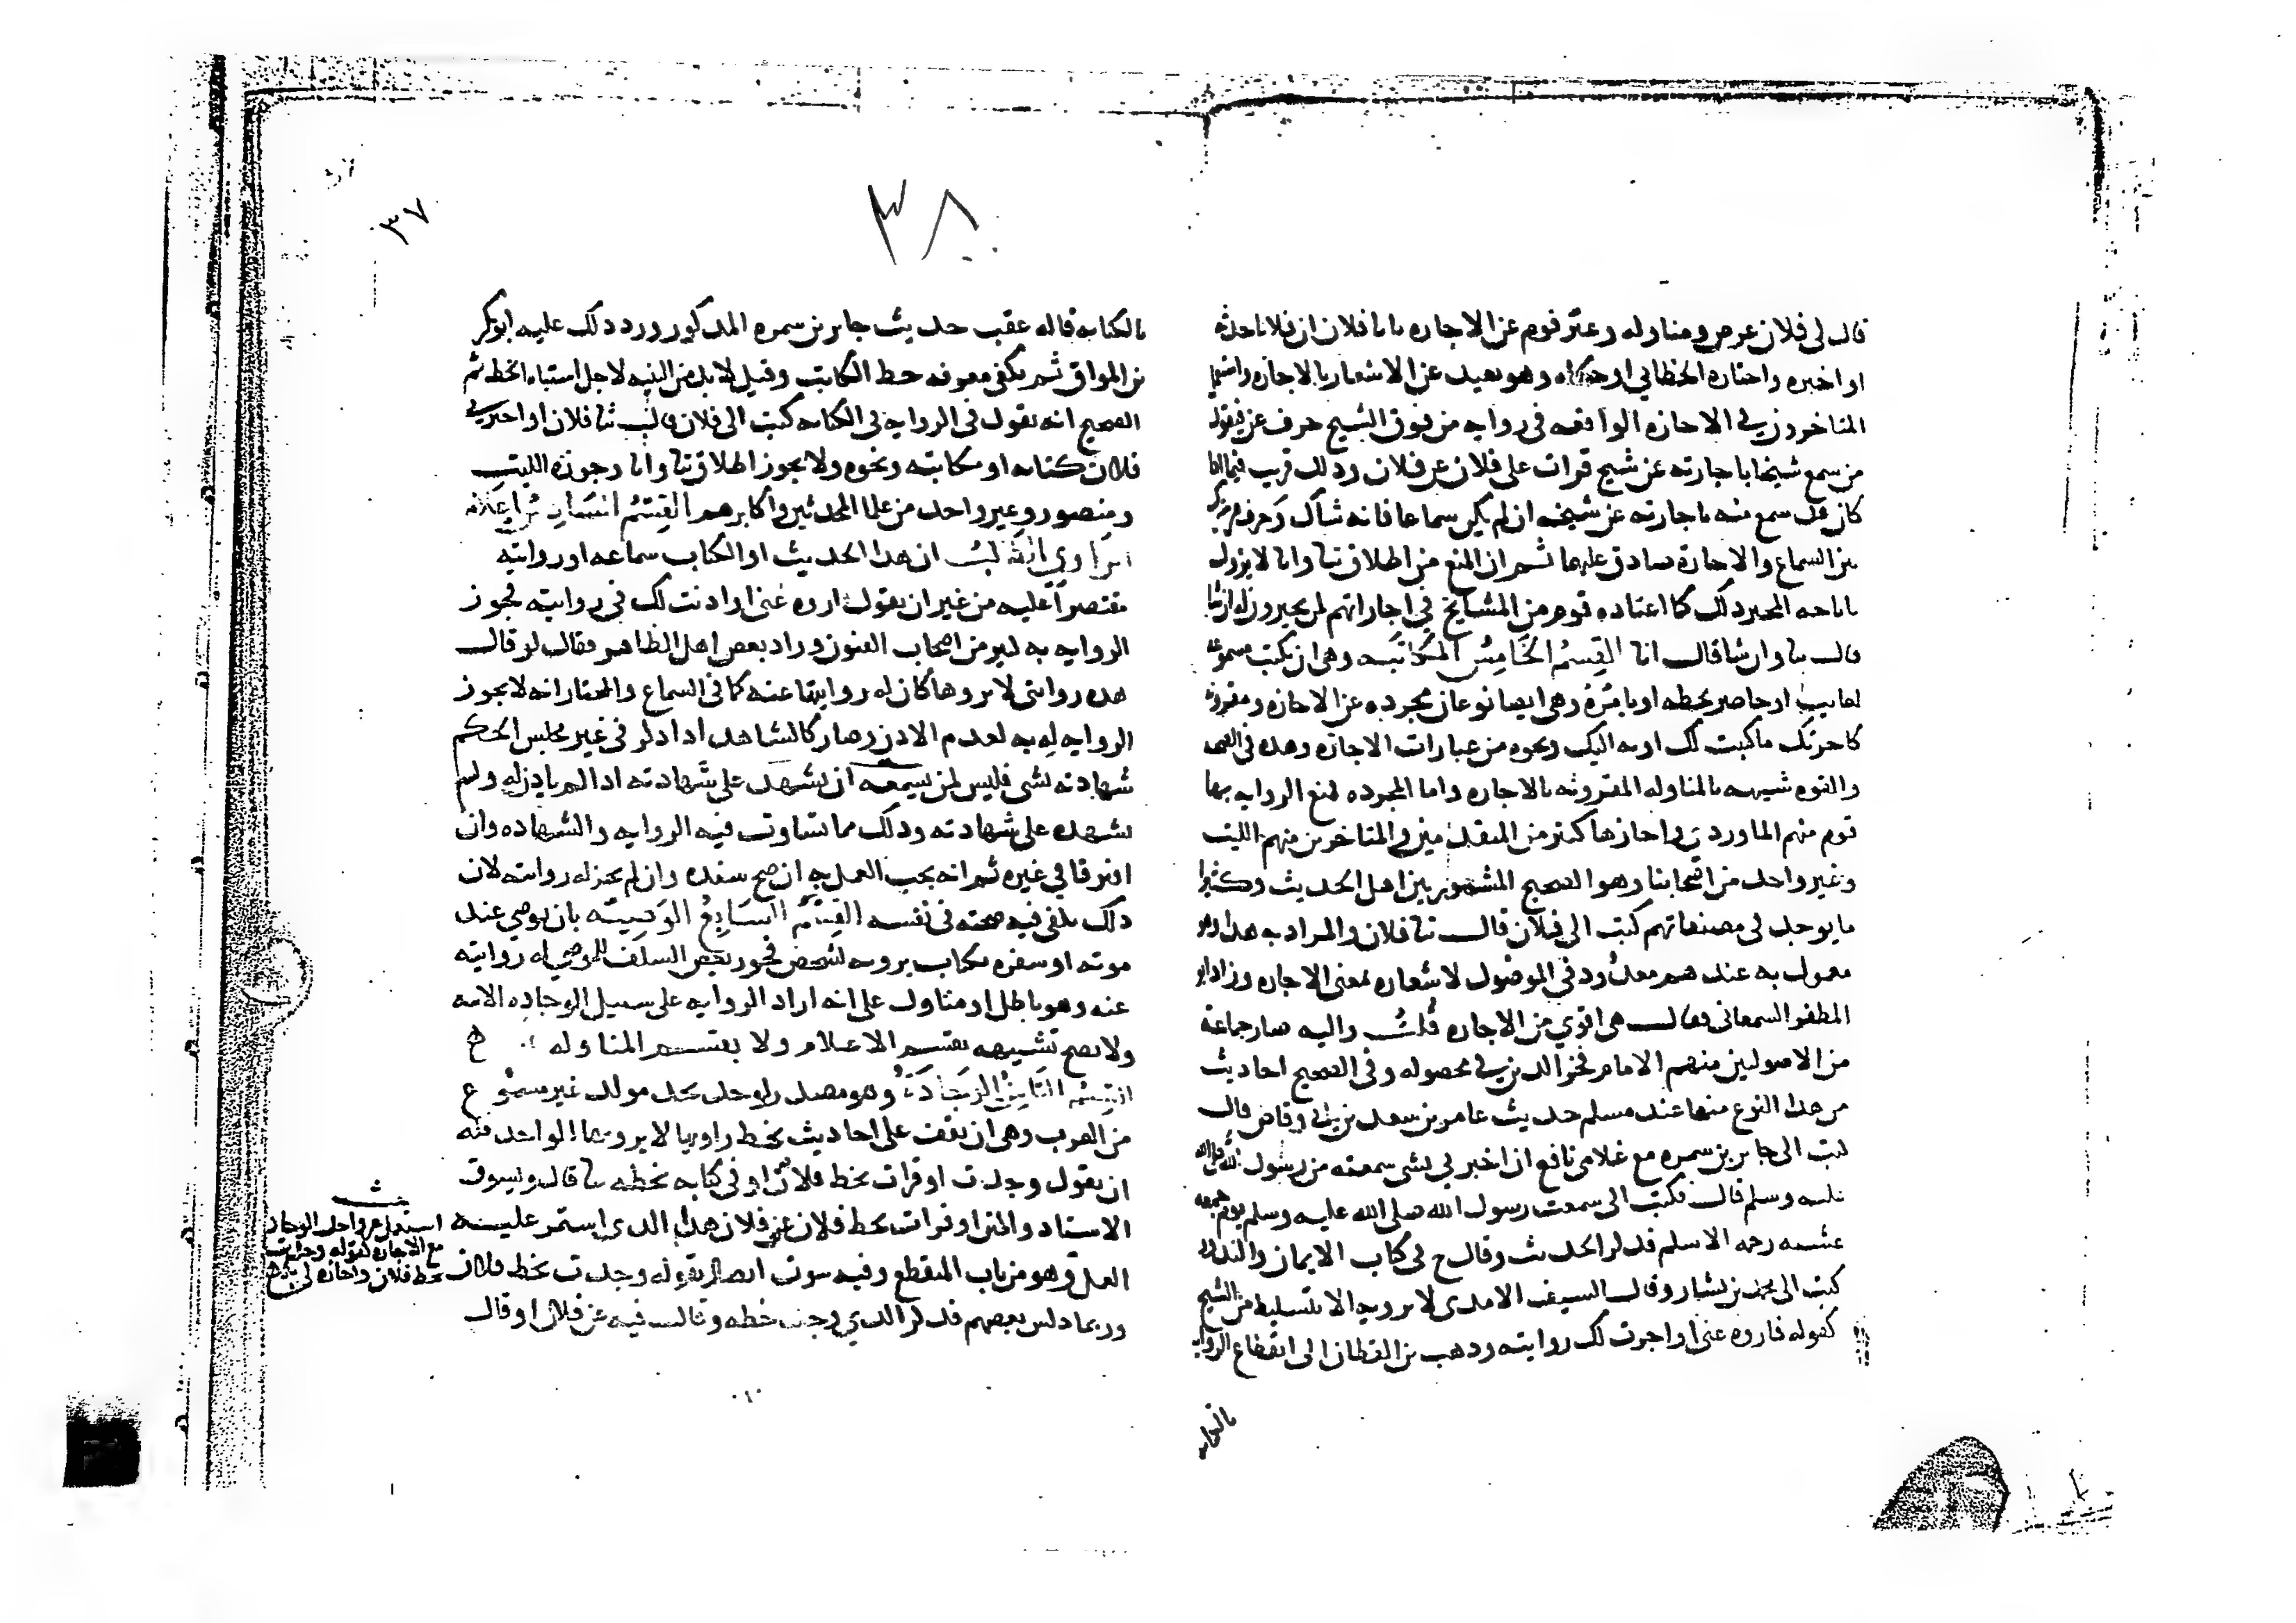 ٣٨
٣٧
قال لي فلان عرض ومناوله وعبر قوم عن الاجازه بانا فلان ان فلانا حدثه
او اخبره واختاره الخطابي او حكاه وهو بعيد عن الاشعار بالاجازه واستعمل
المتاخرون في الاجازه الواقعه في روايه من فوق الشيخ حرف عن فيقول
من سمع شيخا باجازته عن شيخ قرات على فلان عن فلان وذلك قريب فيما اذا
كان قد سمع منه باجازته عن شيخه ان لم يكن سماعا فانه شاك وحرف عن مشترك
بين السماع والاجازة صادق عليهما ثم ان المنع من اطلاق ثنا وانا لا يزول
باباحه المجيز ذلك كما اعتاده قوم من المشايخ في اجازاتهم لمن يجيزون له ان شا
قال ثنا وان شا قال انا القسم الخامس المكاتبه وهي ان يكتب مسموعه
لغايب او حاضر بخطه او بامره وهي ايضا نوعان مجرده عن الاجازه ومقرونه
كاجزتك ما كتبت لك او به اليك ونحوه من عبارات الاجازه وهذه في الصحه
والقوه شبيهه بالمناوله المقرونه بالاجازه واما المجرده فمنع الروايه بها
قوم منهم الماوردي واجازها كثير من المتقدمين والمتاخرين منهم الليث
وغير واحد من اصحابنا وهو الصحيح المشهور بين اهل الحديث وكثيرا
ما يوجد في مصنفاتهم كتب الى فلان قال ثنا فلان والمراد به هذا وهو
معمول به عندهم معدود في الموصول لاشعاره بمعنى الاجازه وزاد ابو
المظفر السمعاني فقال هي اقوي من الاجازه قلت واليه صار جماعة
من الاصوليين منهم الامام فخر الدين في محصوله وفي الصحيح احاديث
من هذا النوع منها عند مسلم حديث عامر بن سعد بن ابي وقاص قال
كتبت الى جابر بن سمره مع غلامي نافع ان اخبرني بشي سمعته من رسول الله صلى الله
عليه وسلم قال فكتب الى سمعت رسول الله صلى الله عليه وسلم يوم جمعه
عشيه رجم الاسلمي فذكر الحديث وقال خ في كتاب الايمان والنذور
كتب الى محمد بن بشار وقال السيف الامدي لا يرويه الا بتسليط من الشيخ
كقوله فاروه عني او اجزت لك روايته وذهب بن القطان الى انقطاع الروايه
بالكتابه
بالكتابه قاله عقب حديث جابر بن سمره المذكور ورد ذلك عليه ابوبكر
بن المواق ثم يكفي معرفه خط الكاتب وقيل لا بد من البينه لاجل اشتباه الخط ثم
الصحيح انه يقول في الروايه في الكتابه كتب الى فلان قال ثنا فلان او اخبرني
فلان كتابه او مكاتبه ونحوه ولا يجوز اطلاق ثنا وانا وجوزه الليث
ومنصور وغير واحد من علما المحدثين واكابرهم القسم السادس اعلام
الراوي الطالب ان هذا الحديث او الكتاب سماعه او روايته
مقتصرا عليه من غير ان يقول اروه عني او اذنت لك في روايته فجوز
الروايه به كثير من اصحاب الفنون وزاد بعض اهل الظاهر فقال لو قال
هذه روايتي لا تروها كان له روايتها عنه كما في السماع والمختار انه لا يجوز
الروايه له به لعدم الاذن وصار كالشاهد اذا ذكر في غير مجلس الحكم
شهادته بشي فليس لمن يسمعه ان يشهد على شهادته اذا لم ياذن له ولم
يشهده على شهادته وذلك مما تساوت فيه الروايه والشهاده وان
افترقا في غيره ثم انه يجب العمل به ان صح سنده وان لم يجز له روايته لان
ذلك يكفي فيه صحته في نفسه القسم السابع الوصيه بان يوصي عند
موته او سفره بكتاب يرويه لشخص فجوز بعض السلف للموصي له روايته
عنه وهو باطل او متاول على انه اراد الروايه على سبيل الوجاده الاتيه
ولا يصح تشبيهه بقسم الاعلام ولا بقسم المناوله
القسم الثامن الوجادة وهو مصدر لوجد يجد مولد غير مسموع
من العرب وهي ان يقف على احاديث بخط راويها لا يرويها الواجد فله
ان يقول وجدت او قرات بخط فلان او في كتابه بخطه ثنا فلان ويسوق
الاسناد والمتن او قرات بخط فلان عن فلان هذا الذي استمر عليه
العمل وهو من باب المنقطع وفيه شوب اتصال بقوله وجدت بخط فلان
وربما دلس بعضهم فذكر الذي وجد خطه وقال فيه عن فلان او قال
استعمل غير واحد الوجاده
مع الاجازه كقوله وجدت
بخط فلان واجازه لي